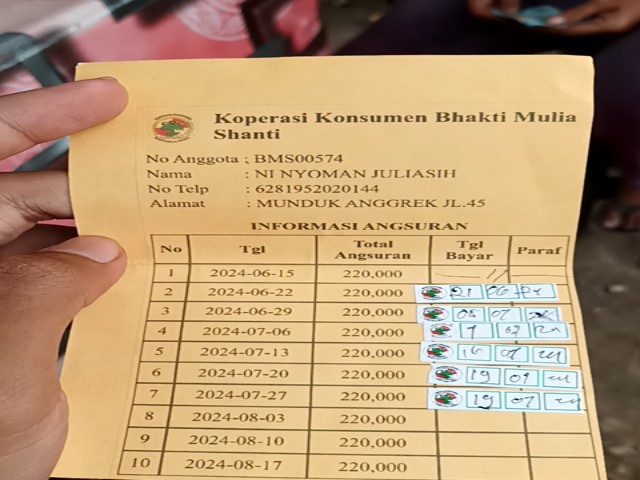 Koperasi Konsumen Bhakti Mulia
Shanti
No Anggota : BMS00574
Nama : NI NYOMAN JULIASIH
No Telp : 6281952020144
Alamat : MUNDUK ANGGREK JL.45
INFORMASI ANGSURAN
No Tgl Total Angsuran Tgl Bayar Paraf
1 2024-06-15 220,000
2 2024-06-22 220,000 21 06 24
3 2024-06-29 220,000 07
4 2024-07-06 220,000
5 2024-07-13 220,000 16 07
6 2024-07-20 220,000 19 07
7 2024-07-27 220,000 19 07
8 2024-08-03 220,000
9 2024-08-10 220,000
10 2024-08-17 220,000